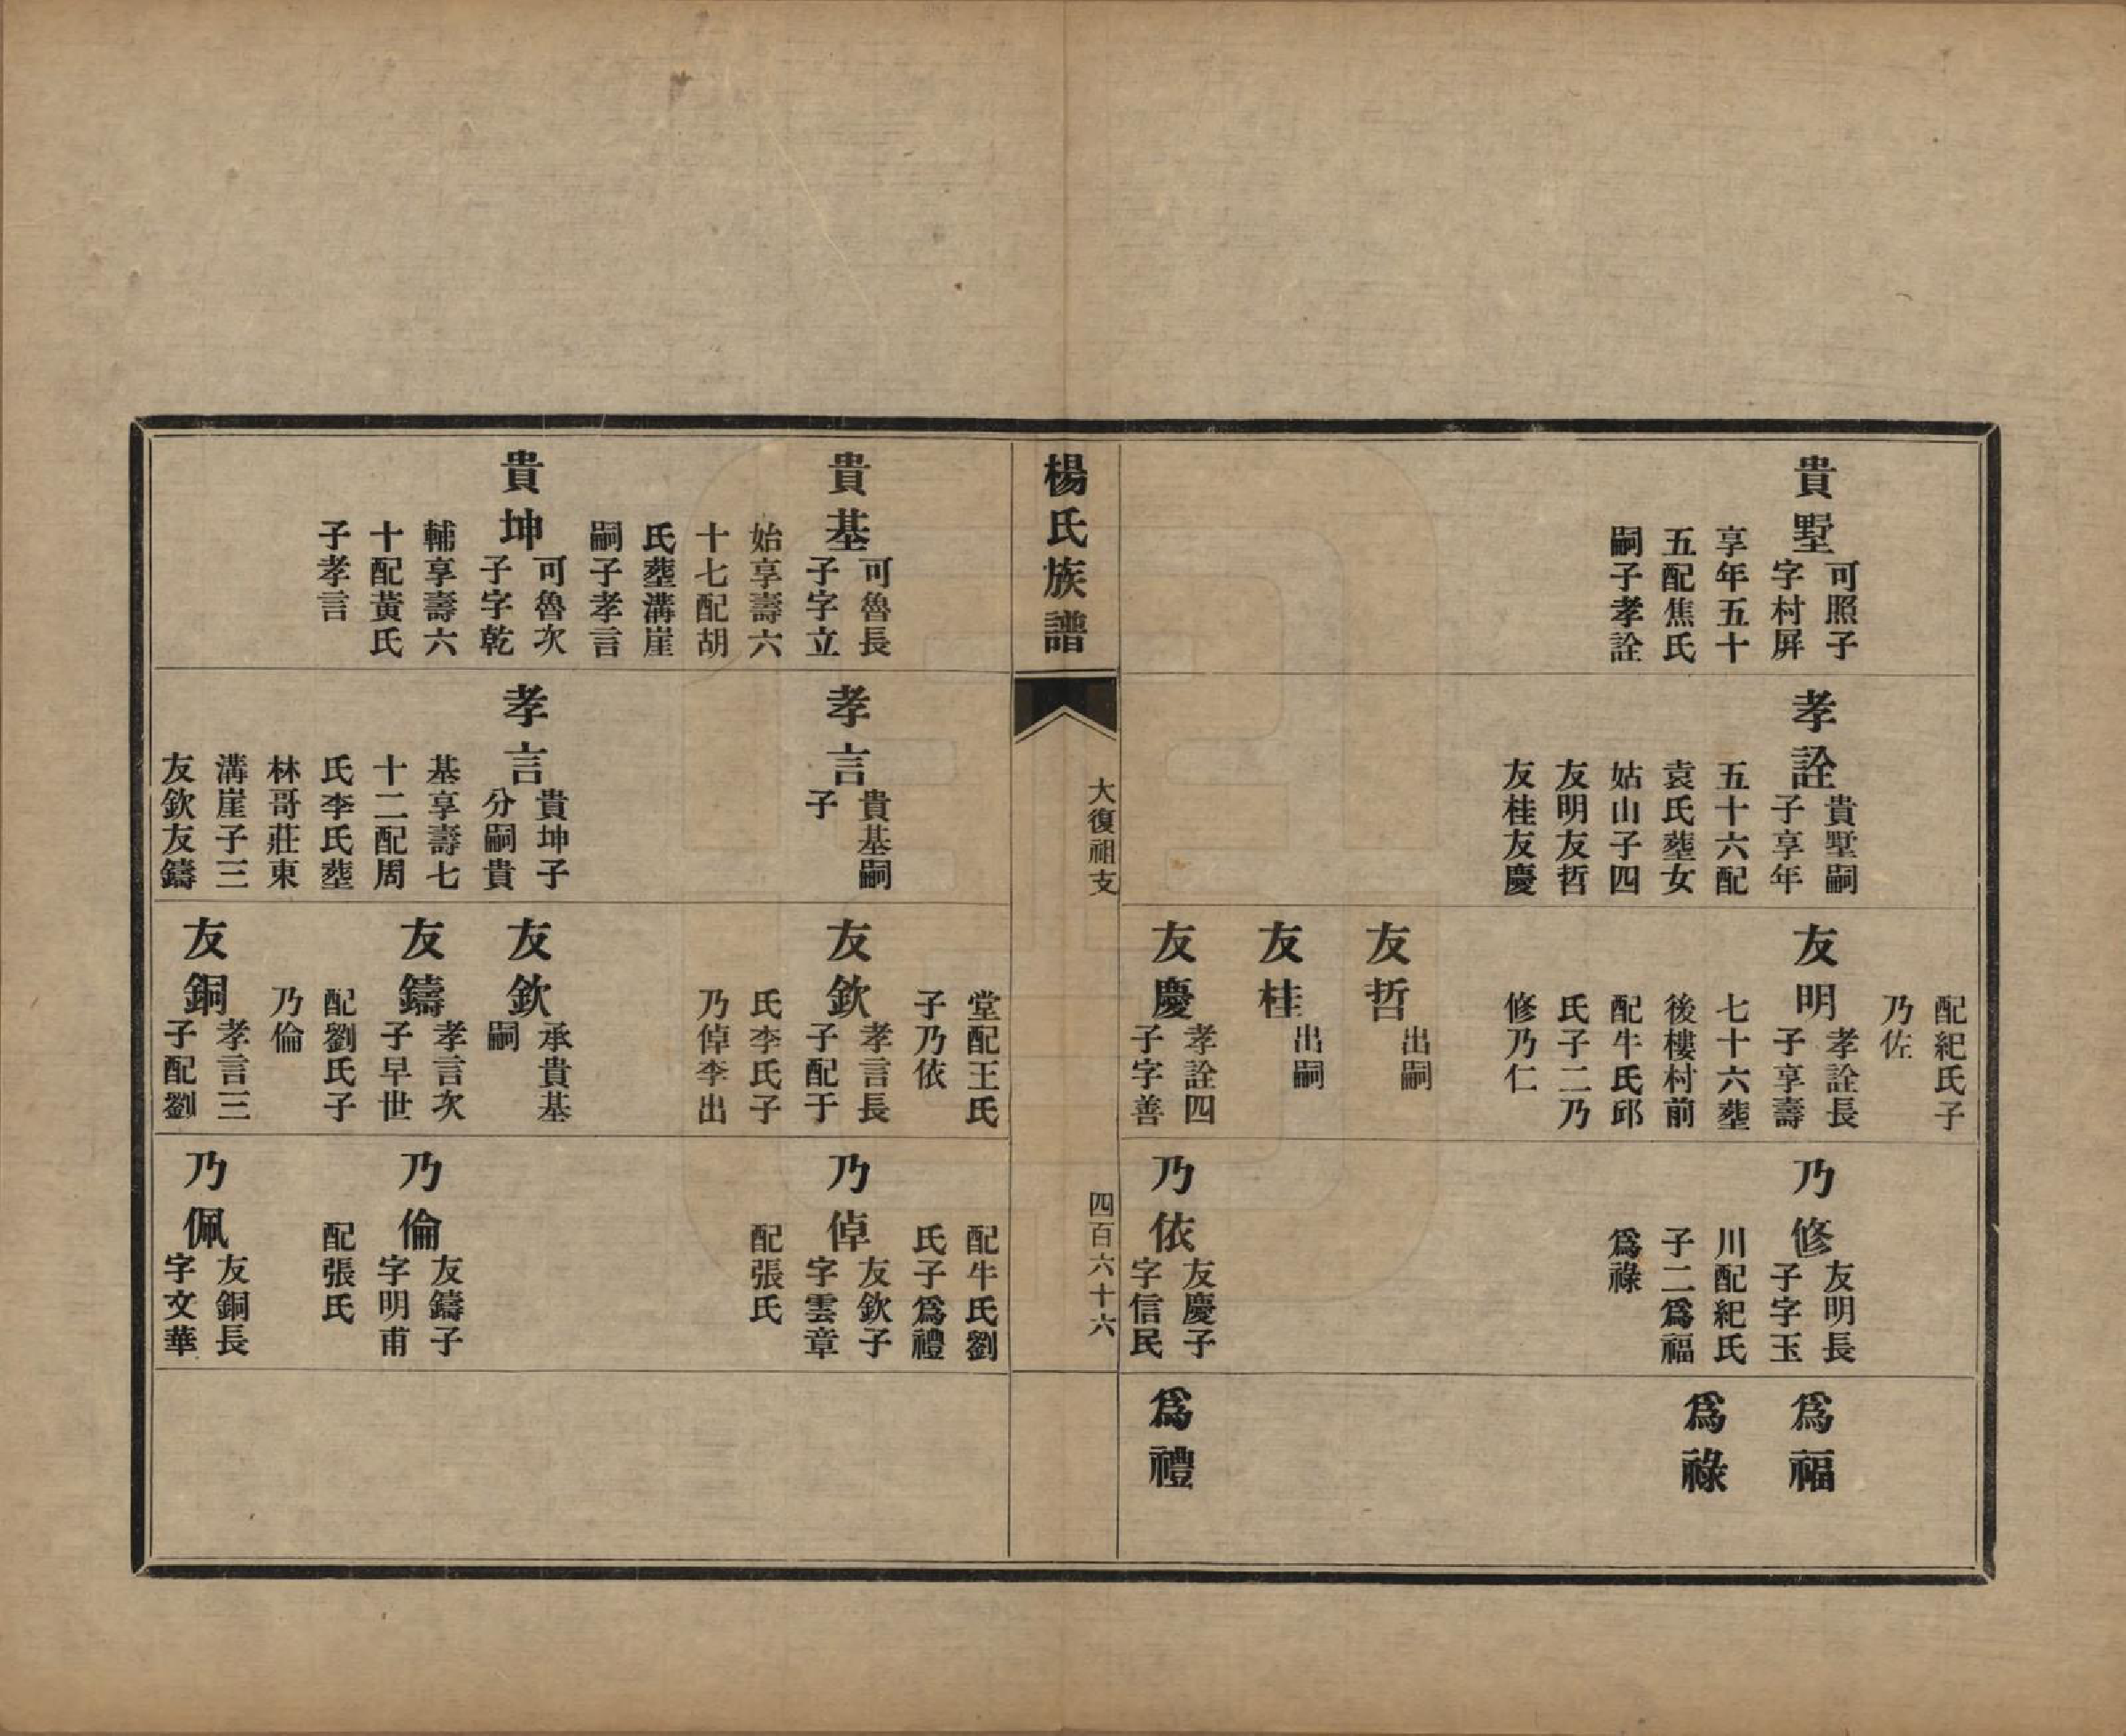 貴墅
可照子
字村屏
享年五十
五配焦氏
嗣子孝詮
孝詮
貴墅嗣
子享年
五十六配
袁氏塟女
姑山子四
友明友哲
友桂友慶
配紀氏子
乃佐
友明
孝詮長
子享壽
七十六塟
後樓村前
配牛氏邱
氏子二乃
修乃仁
友哲
出嗣
友桂
出嗣
友慶
孝詮四
子字善
乃修
友明長
子字玉
川配紀氏
子二為福
為祿
乃依
友慶子
字信民
為福
為祿
為禮
楊氏族譜
大復祖支
四百六十六
貴基
可魯長
子字立
始享壽六
十七配胡
氏塟溝崖
嗣子孝言
貴坤
可魯次
子字乾
輔享壽六
十配黃氏
子孝言
孝言
貴基嗣
子
孝言
貴坤子
分嗣貴
基享壽七
十二配周
氏李氏塟
林哥莊東
溝崖子三
友欽友鑄
堂配王氏
子乃依
友欽
孝言長
子配于
氏李氏子
乃倬李出
友欽
承貴基
嗣
友鑄
孝言次
子早世
配劉氏子
乃倫
友銅
孝言三
子配劉
配牛氏劉
氏子為禮
乃倬
友欽子
字雲章
配張氏
乃倫
友鑄子
字明甫
配張氏
乃佩
友銅長
字文華